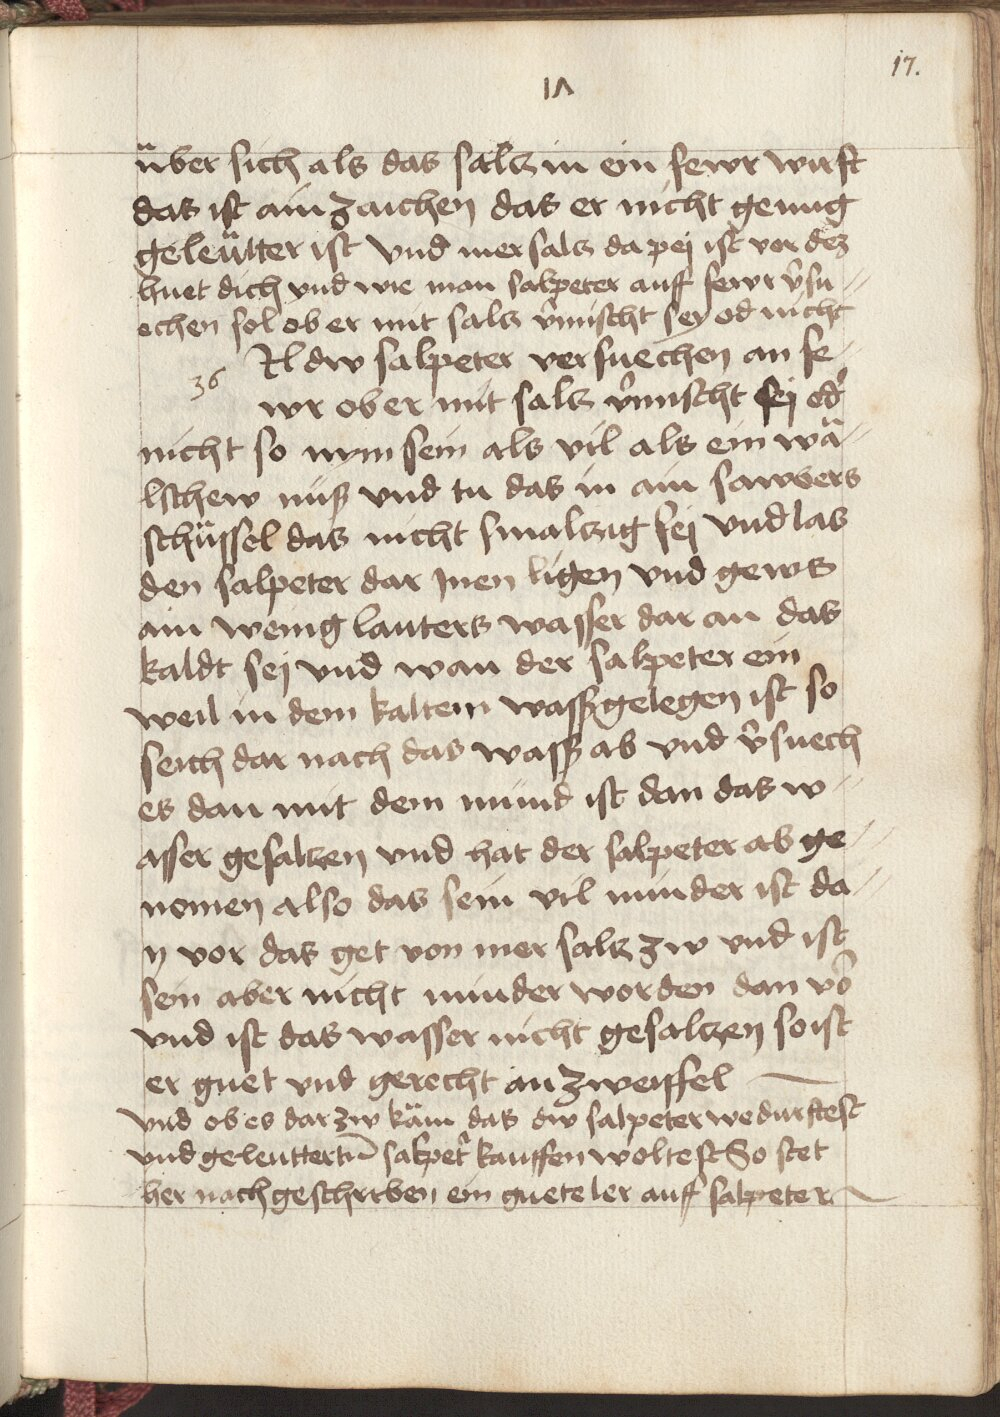 17.
1Λ
über sich als das salz in ein fewr wirft
das ist ain zaichen das er nicht genug
geleütter ist vnd mer salz da pej ist vor dez
huet dich vnd wie man salpeter auff fewr v̉su-
echen sol ob er mit salz v̉mischt sey od nicht
36 Wil dw salpeter versuechen an fe-
wr ob er mit salz v̉mischt sej od̉
nicht so nym sein als vil als ein wä-
lschew nuß vnd tu das in ain sawbers
schüssel das nicht smalzig sej vnd las
den salpeter dar Inen ligen vnd gews
ain wenig lauters wasser dar an das
kaldt sej vnd wan der salpeter ein
weil in dem kaltem wasß gelegen ist so
seich dar nach das wasß ab vnd v̉suech
es dan mit dem mund ist dan das w-
asser gesalzen vnd hat der salpeter ab ge-
nomen also das sein vil minder ist da-
n vor das get von mer salz zw vnd ist
sein aber nicht minder worden dan vō
vnd ist das wasser nicht gesalzen so ist
er guet vnd gerecht an zweiffel
vnd ob es dar zw käm das dw salpeter wedurftest
vnd geleuttertn̄ salpet̉ kauffen woltest So stet
her nach geschrrben ein guete ler auff salpeter